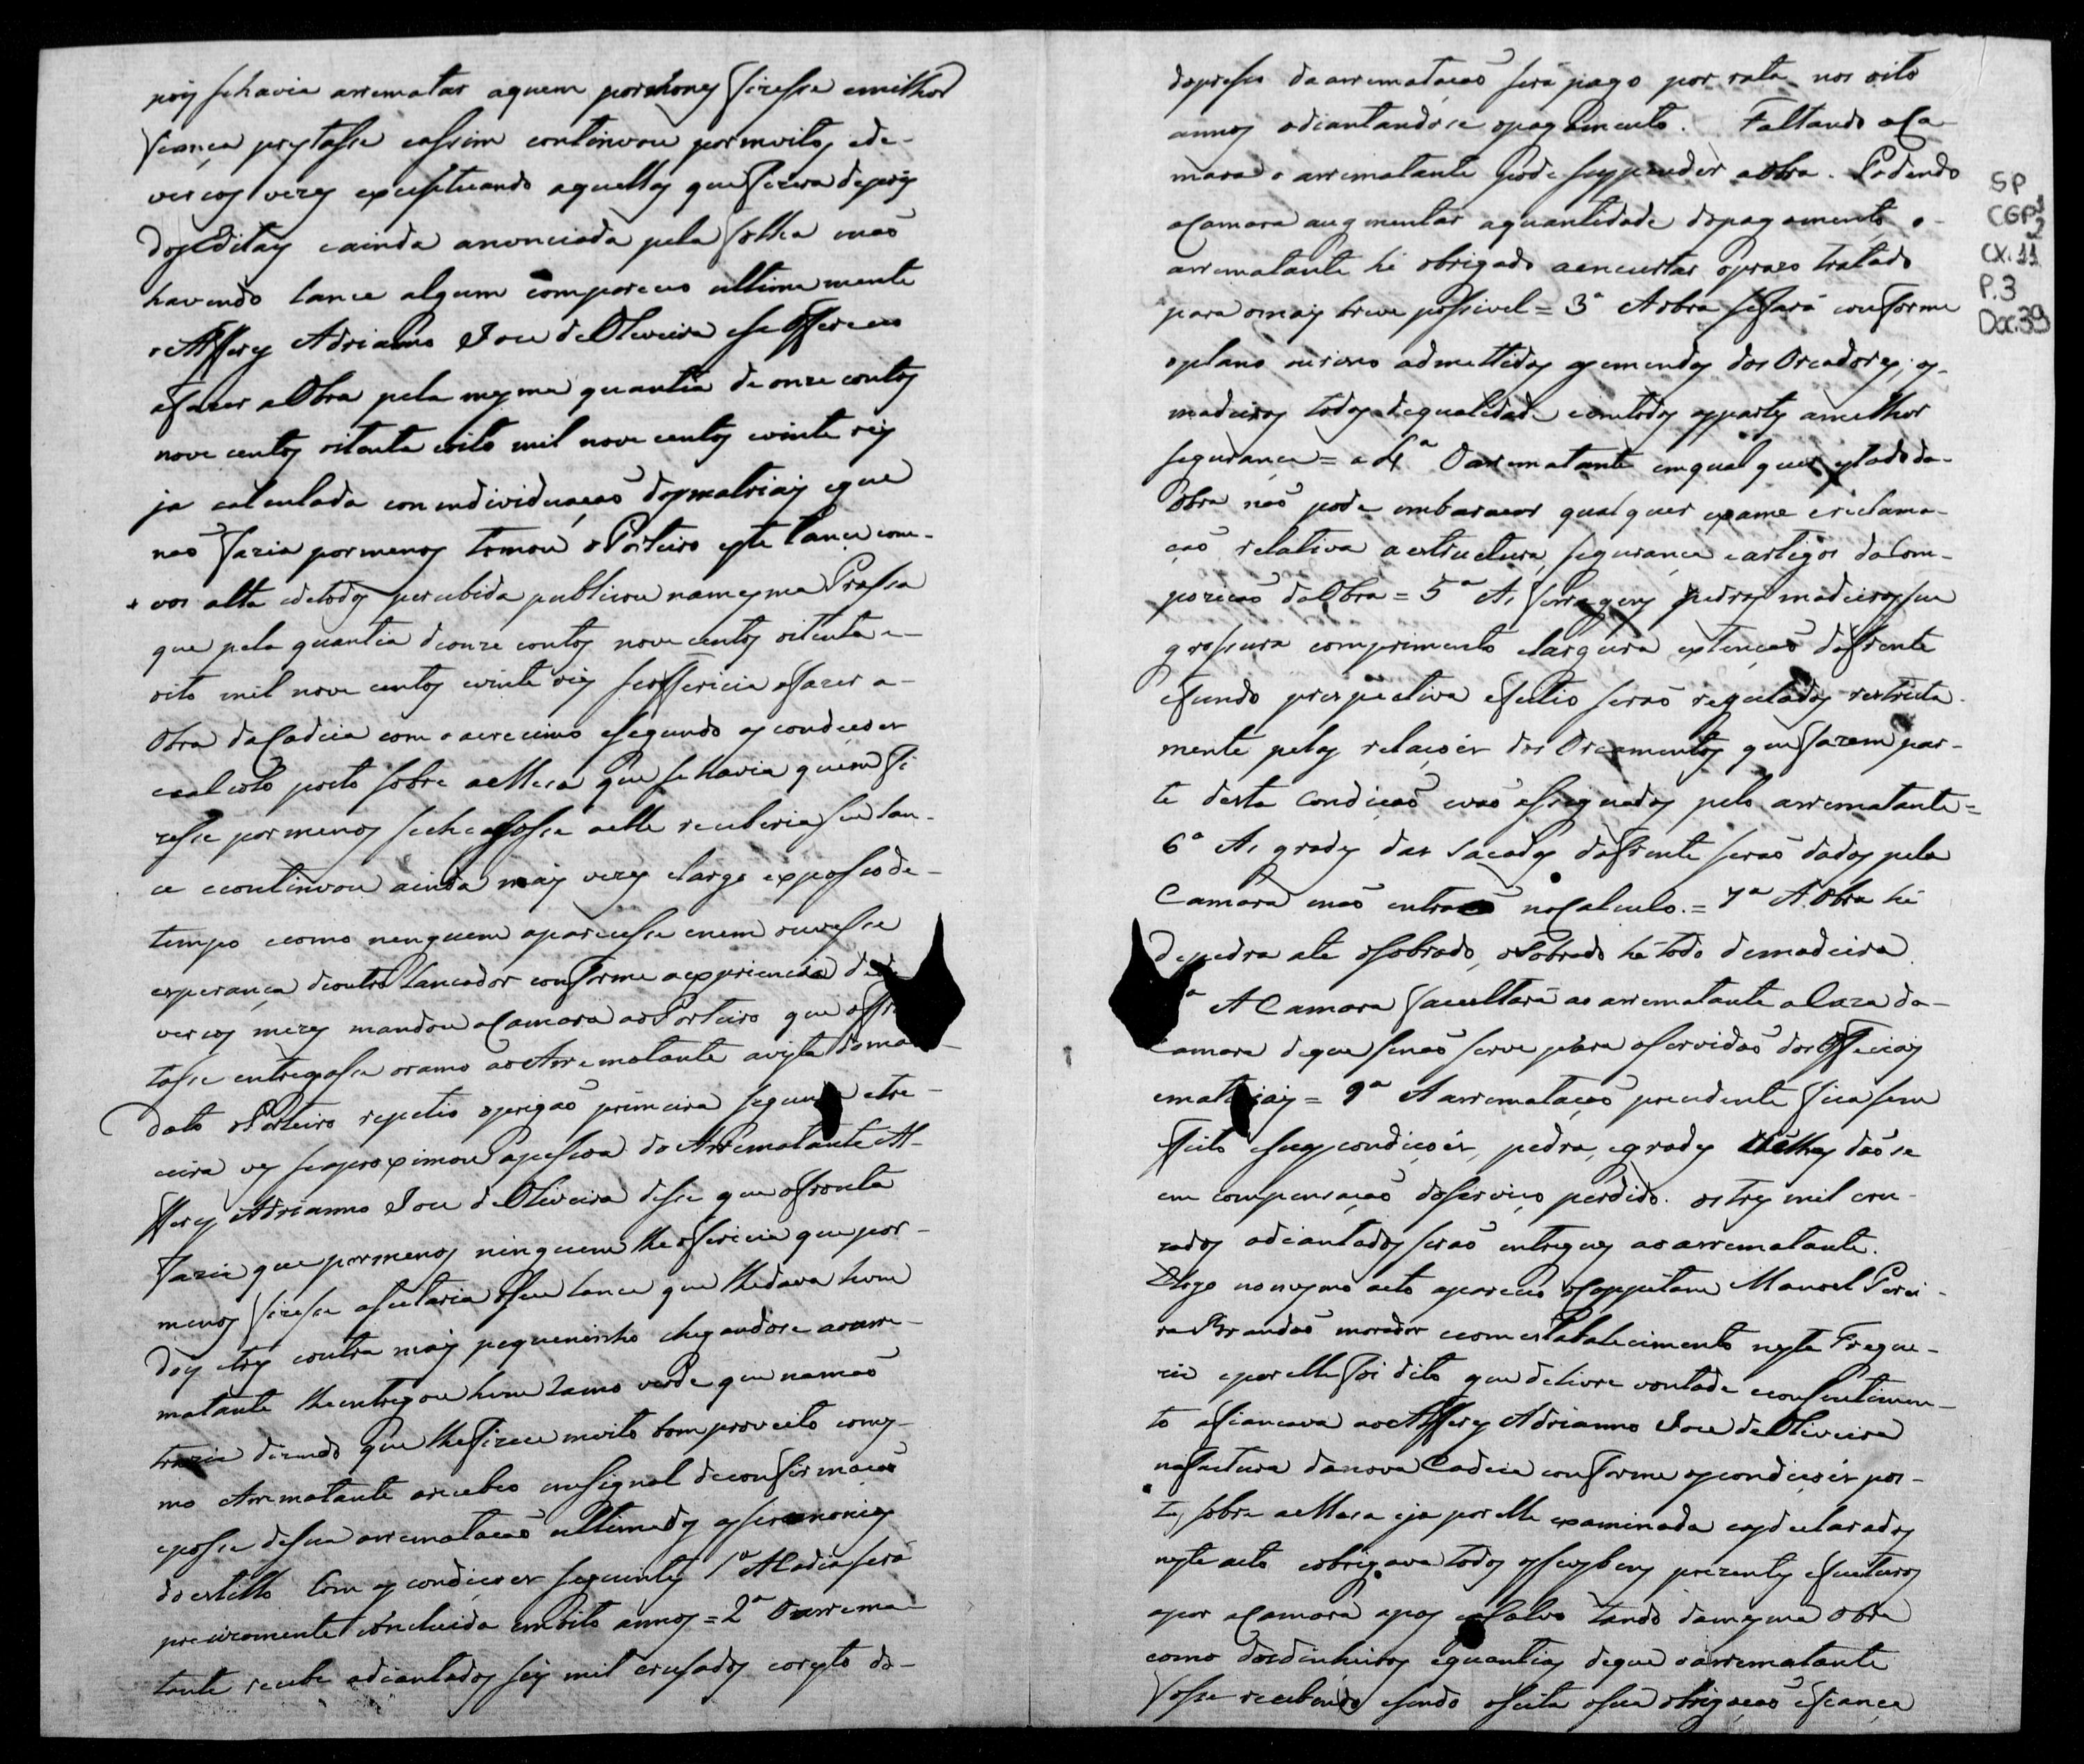 pois se havia arrematar aquem por menos fizesse emilhor
fiança prestasse eassim continuou por muitos ede-
vercos vezes exceptuando aquellas que fizera depois
dos Editais eainda anonciada pela folha enaõ
havendo lance algum compareceo ultimamente
o Alferes Adrianno Joze de Oliveira ese offereceo
afazer a Obra pela mesma quantia de onze contos
nove centos oitenta eoito mil nove centos evinte reis
ja calculada com individuaçaõ dos matriais eque
naõ faria por menos tomou o Porteiro este lanço em-
vos alta edetodos percebida publicou na mesma Prassa
que pela quantia de onze contos nove centos oitenta e-
oito mil nove centos evinte reis se offericia afazer a-
Obra da Cadeia com o acrecimo esegundo as condicoes
ecalculo posto sobre a Meza que se havia quem fi
zesse por menos sechegasse aelle receberia seu lan-
ce econtinuou ainda mais vezes elargo expasso de-
tempo ecomo nenguem aparecesse enem ouvesse
esperança deoutro Lançador conforme aexpriencia de
vercos mezes mandou a Camara ao Porteiro que
tasse entregasse oramo ao Arrematante avista do man
dato o Porteiro repetio opregaõ primeira segunda etre-
ceira ves seaproximou apessoa do Arrematante Al-
feres Adrianno Joze de Oliveira disse que afronta
fazia que por menos ninguem lhe offericia que por-
menos fizesse aseitaria oseu lance que lhe dava huma
dois etres eoutra mais pequeninho chegandose aoarre-
matante lhe entregou hum Ramo verde que namaõ
trazia dizendo que lhe fizece muito bom proveito eomes-
mo Arrematante orecebeo em signal deconfirmaçaõ
eposse desua arremataçaõ ultimadas as ceremonias
do estillo Com as condiçoes seguintes 1ª A Cadia sera
precizamente Concluida em oito annos = 2ª O arrema
tante recebe adiantados seis mil crusados eoresto do-
dopresso da arremataçaõ será pago por rata nos oito
annos adiantandose opagamento. Faltando aCa-
mara o arrematante pode suspender aobra. Podendo
aCamara augmentar aquantidade dopagamento o-
arrematante hé obrigado aencurtar oprazo tratado
para omais breve possivel = 3ª A obra sefará conforme
oplano erisco admettidas as emendas dos Orcadores, os
madeiros todos dequalidade eem todas as partes amelhor
segurança = a 4ª O arrematante em qual quer estado da-
Obra naõ pode embaraçar qual quer exame ereclama-
çaõ relativa a estructura, segurança eartigos da Com-
poziçaõ da Obra = 5ª As ferragens pedras madeiros sua
grossura comprimento elargura extençaõ dafrente
efundo prespectiva efeitio seraõ regulados restricta-
mente pelas relaçoes dos Orçamentos que fazem par-
te desta Condiçaõ evaõ assignados pelo arrematante =
6ª As grades das sacadas dafrente seraõ dadas pela
Camara enaõ entraõ no Calculo. = 7ª A Obra hé
depedra ate osobrado, oSobrado hé todo demadeira
ª A Camara facultará ao arrematante aCaza da-
Camara deque senaõ serve para aservidaõ dos Officiais
ematriais = 9ª A arremataçaõ precedente fica sem
effeito esuas condiçoes, pedra, egrades velhas daõse
em compensaçaõ doserviço perdido. os tres mil cru-
zados adiantados seraõ entregues ao arrematante.
Elogo no mesmo acto apareceo oCappitam Manoel Perei-
ra Brandaõ morador ecom estabalecimento nesta Fregue-
zia epor elle foi dito que delivre vontade econsentimen-
to afiancava ao Alferes Adrianno Joze de Oliveira
nafactura da nova Cadeia conforme as condiçoes pos-
tas sobre a Meza eja por elle examinada easdeclaradas
neste acto eobrigava todos os seus bens prezentes efucturos
apor aCamara apas e Salvo tanto da mesma Obra
como dos dinheiros equantias deque o arrematante
fosse recebendo esendo aseita asua obrigaçaõ efiança
SP
CGP1
2
CX.11
P.3
Doc.39